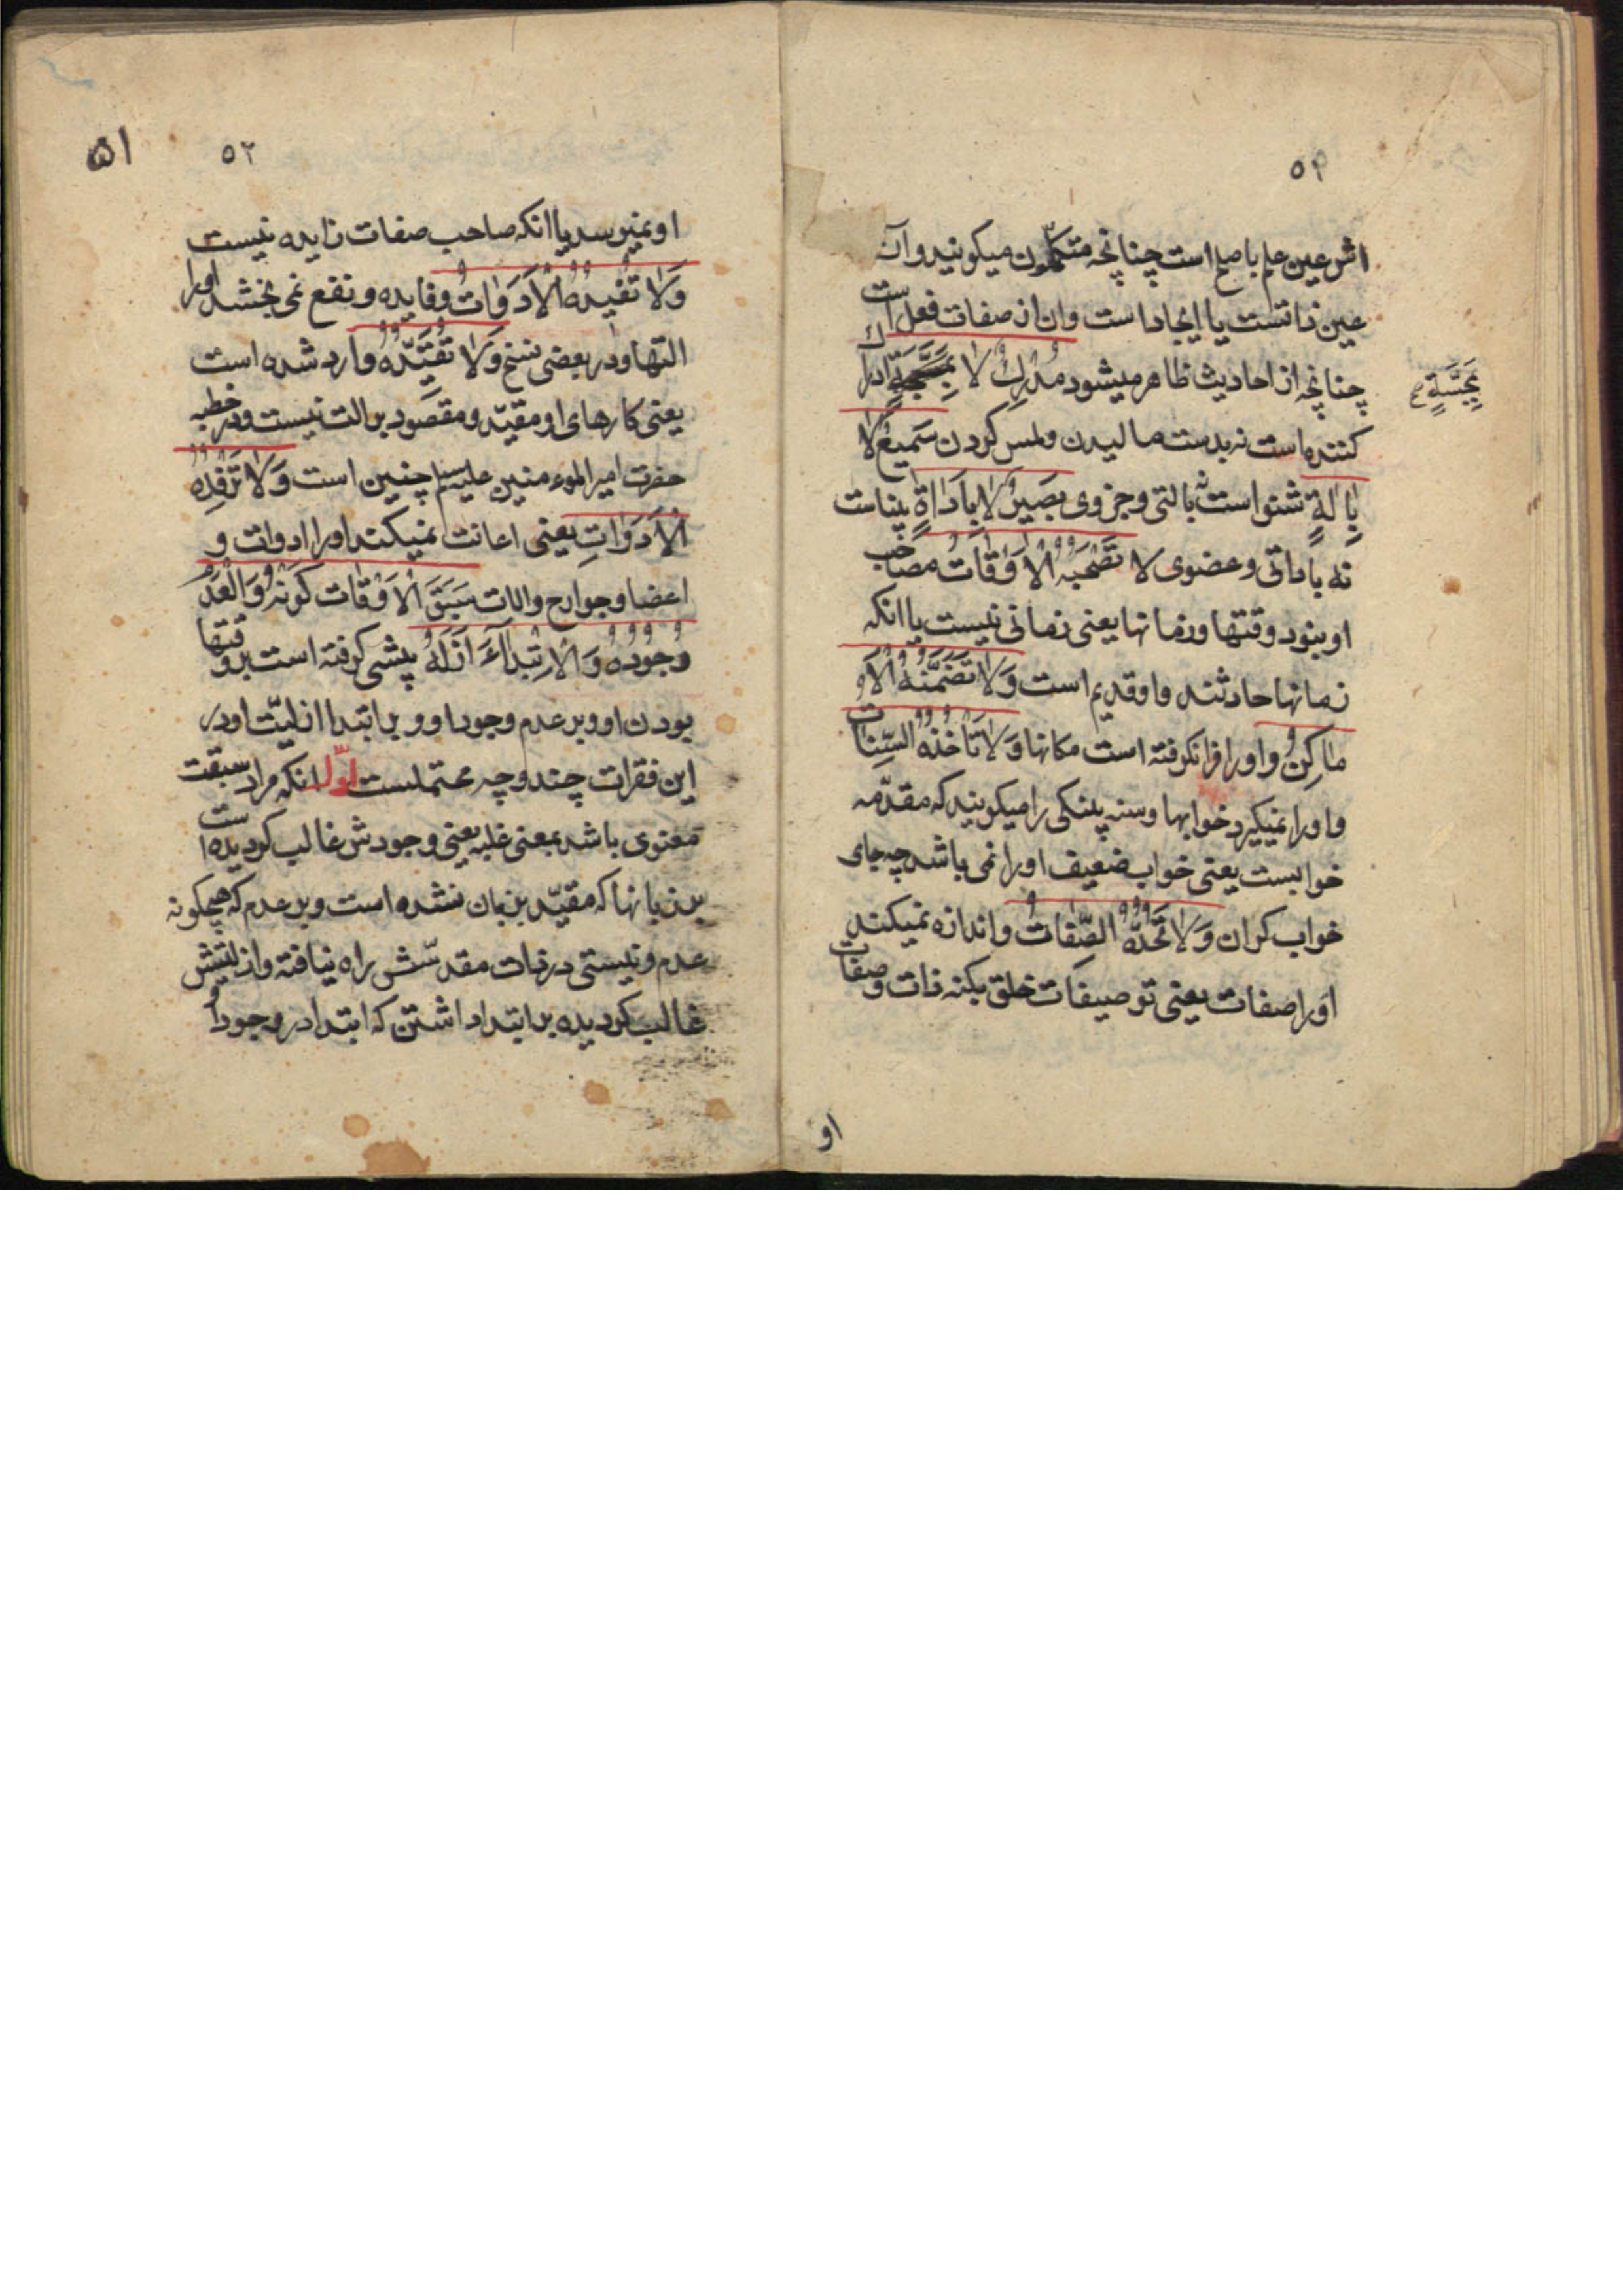 ۵۱
اش عین علم باصلح است چنانچه متکلمون میکویند و آن
عین ذاتست یا ایجاد است و ان از صفات فعل است
چنانچه از احادیث ظاهر میشود مُدْرِكٌ لا بِمَجَسَّةٍ ادراک
بِمَجَسَّةٍ
کننده است نه بدست مالیدن و لمس کردن سَمیعٌ لا
بِاٰلَةٍ شنوا است نه بالتی و جزوی بَصیرٌ لا بِاَدٰاةٍ بیناست
نه باداتی و عضوی لا تَصْحَبُهُ الْاَوْقٰاتُ مصاحب
او نبود وقتها و زمانها یعنی زمانی نیست یا انکه
زمانها حادثند و او قدیم است وَلاٰ تَضَمَّنُهُ الْاَ
مٰاكِنُ و او را فرا نکرفته است مکانها وَلاٰ تَاْخُذُهُ السِّنٰاتُ
و او را نمیکیرد خوابها و سنه پینکی را میکویند که مقدّمه
خوابست یعنی خواب ضعیف او را نمی باشد چه جای
خواب کران وَلاٰ تَحُدُّهُ الصِّفٰاتُ و اندازه نمیکند
او را صفات یعنی توصیفات خلق بکنه ذات و صفات
او
۵۲
۵۱
او نمیرسد یا انکه صاحب صفات زایده نیست
وَلاٰ تُفیدُهُ الْاَدَوٰاتُ و فایده و نفع نمی بخشد او را
التها و در بعضی نسخ وَلاٰ تُقَیِّدُهُ وارد شده است
یعنی کارهای او مقیّد و مقصود بر الت نیست و در خطبه
حضرت امیر المؤمنین علیه السلام چنین است وَلاٰ تَرْفِدُهُ
الْاَدَوٰاتِ یعنی اعانت نمیکند او را ادوات و
اعضا و جوارح و الات سَبَقَ الْاَوْقٰاتَ کَوْنُهُ وَالْعَدَمَ
وُجُودُهُ وَالْاِبْتِدٰآءَ اَزَلُهُ پیشی کرفته است بر وقتها
بودن او و بر عدم وجود او و بر ابتدا ازلیّت او در
این فقرات چند وجه محتملست اوّل انکه مراد سبقت
معنوی باشد بمعنی غلبه یعنی وجودش غالب کردیده است
بر زمانها که مقیّد بزمان نشده است و بر عدم که هیچکونه
عدم و نیستی در ذات مقدّسش راه نیافته و ازلیتش
غالب کردیده بر ابتدا داشتن که ابتدا در وجود او